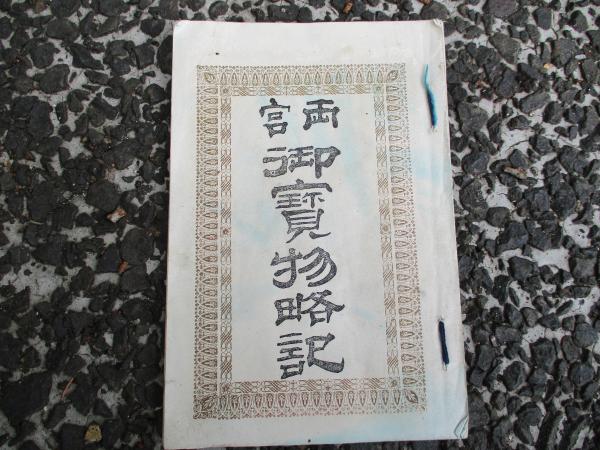 両宮
御寳物略記